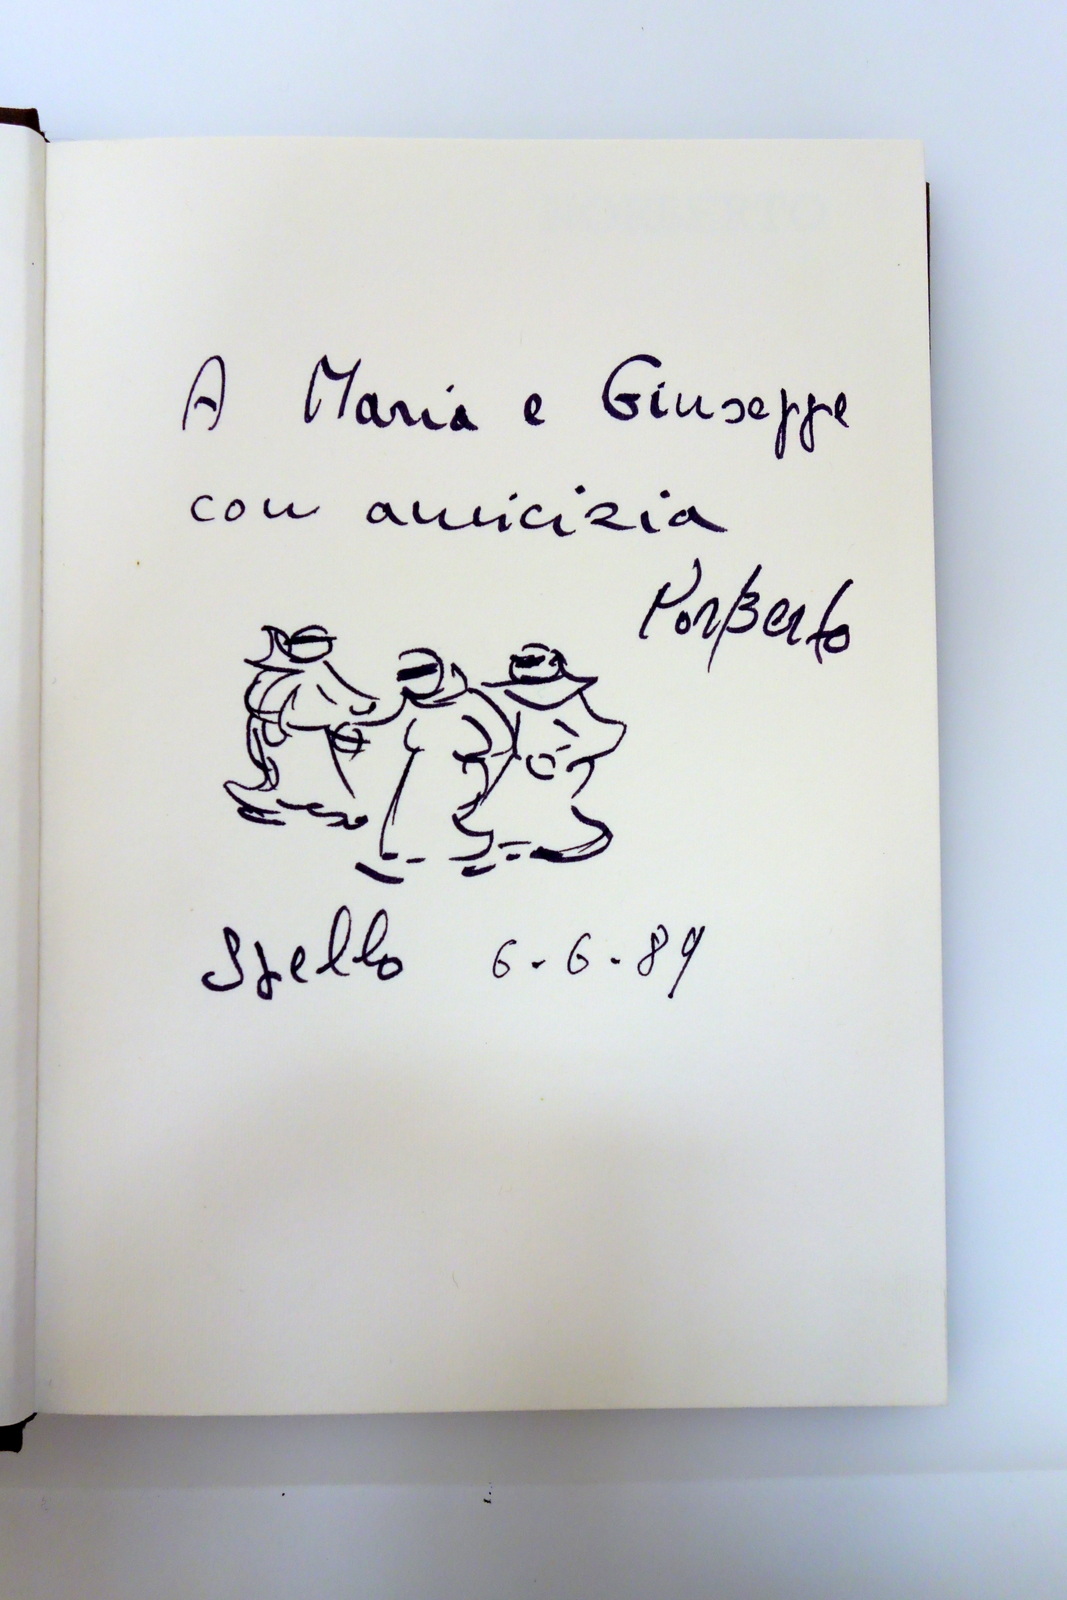 NORBERTO
A Maria e Giuseppe
con amicizia
Norberto
Spello 6-6-89